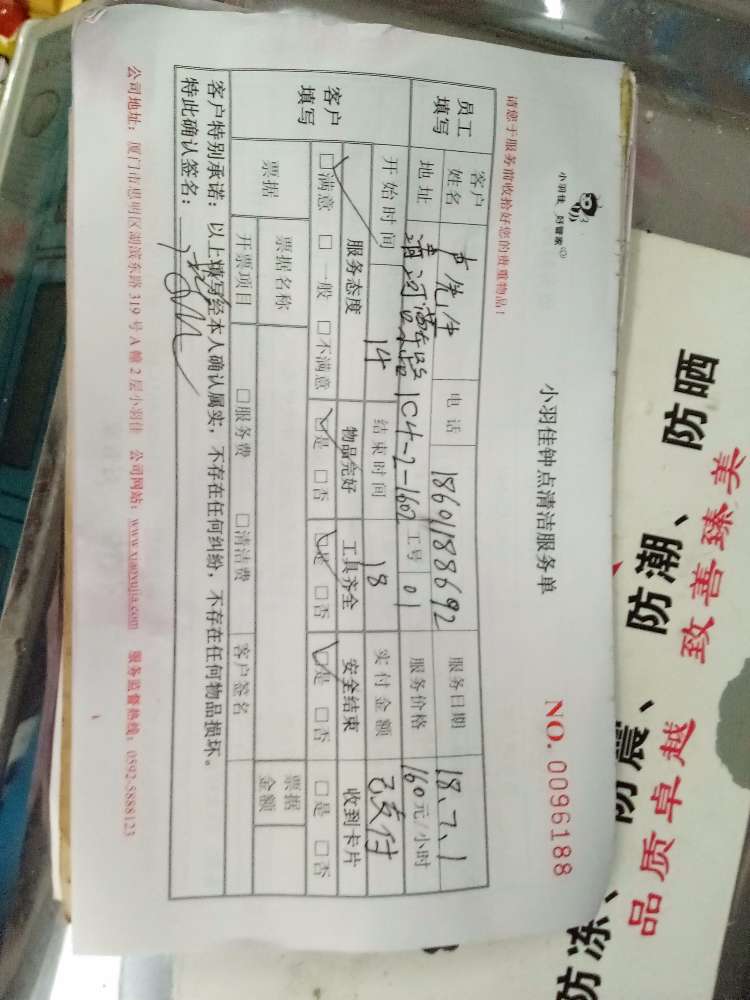 小羽佳 好管家
小羽佳钟点清洁服务单
NO. 0096188
请您于服务前收拾好您的贵重物品!
员工填写
客户姓名 卢先生 电话 18601188692 服务日期 18.7.1
地址 清河 路 1C4-2-1602 工号 01 服务价格 160元/小时
开始时间 14 结束时间 18 实付金额 已支付
客户填写
服务态度 物品完好 工具齐全 安全结束 收到卡片
□满意 □一般 □不满意 □是 □否 □是 □否 □是 □否 □是 □否
票据 票据名称 票据金额
开票项目 □服务费 □清洁费 客户签名
客户特别承诺:以上填写经本人确认属实,不存在任何纠纷,不存在任何物品损坏。
特此确认签名:
公司地址:厦门市思明区湖滨东路 319 号 A 幢 2 层小羽佳 公司网站:www.xiaoyujia.com 服务监督热线:0592-5888123
防冻、防震、防潮、防晒
品质卓越 致善臻美